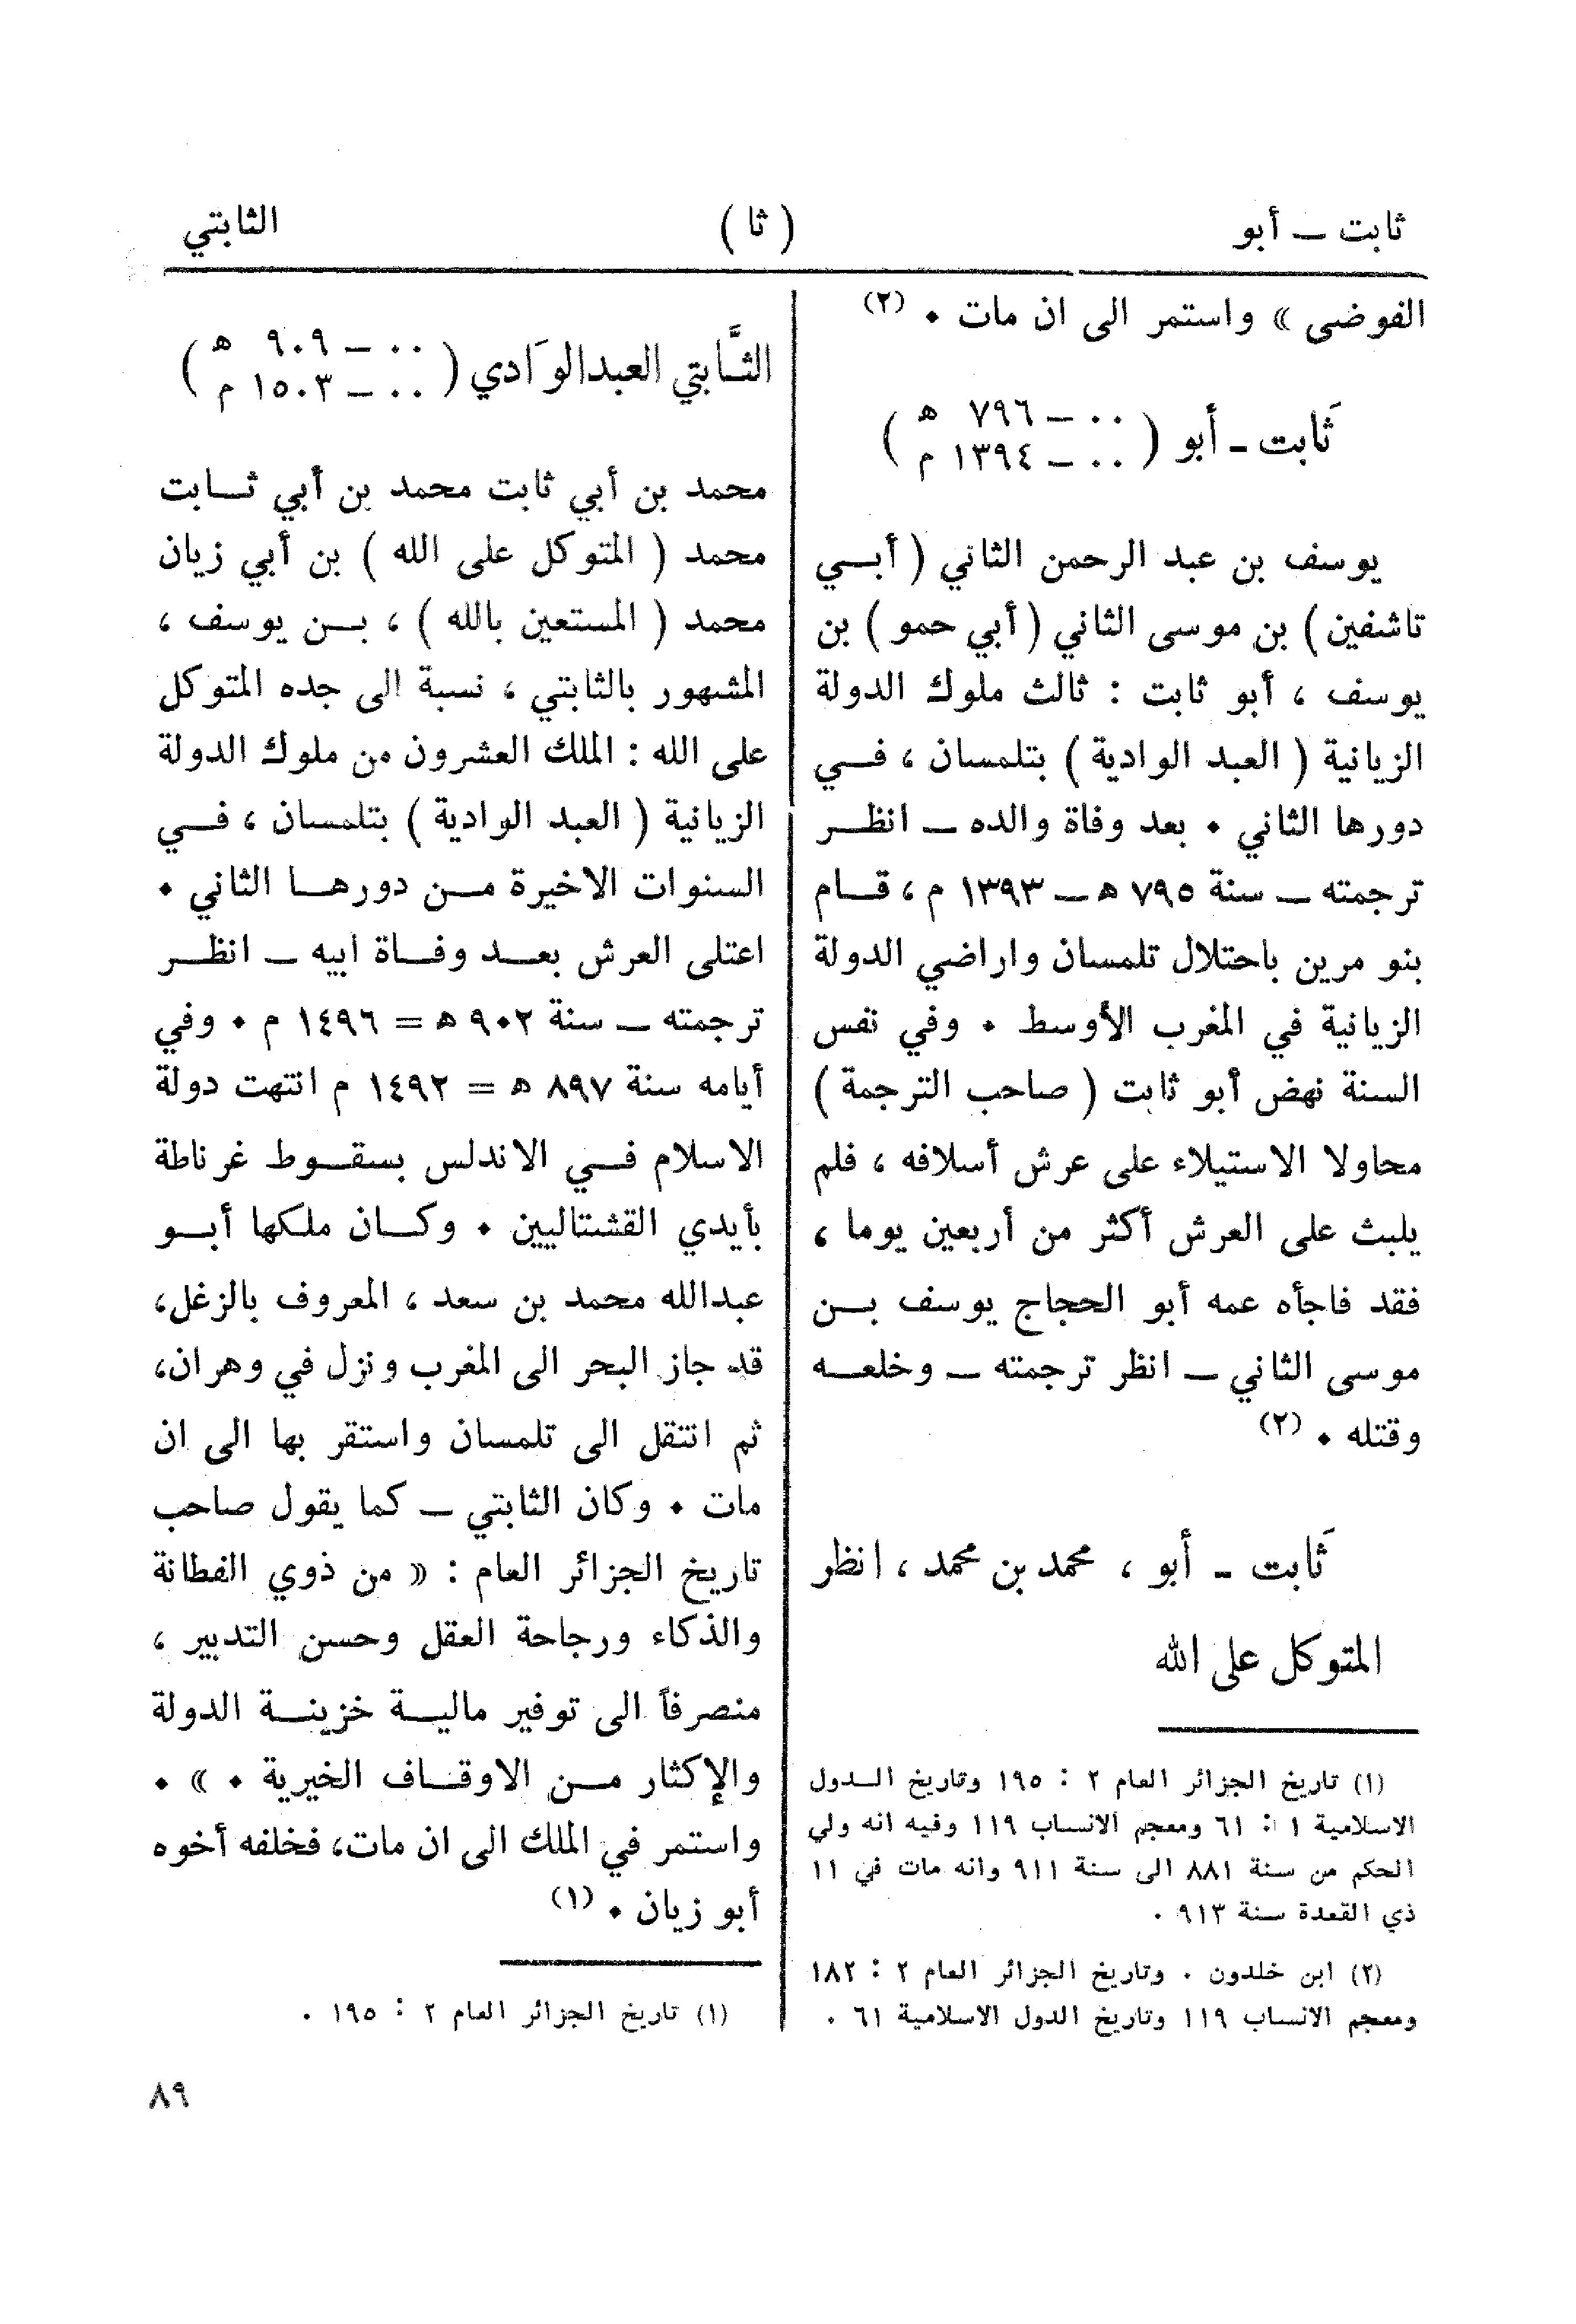 ثابت – أبو ( ثا ) الثابتي
الفوضى » واستمر الى ان مات . (٢)
ثَابت - أبو ( ٠٠ – ٧٩٦ هـ
٠٠ – ١٣٩٤ م )
يوسف بن عبد الرحمن الثاني ( أبي
تاشفين ) بن موسى الثاني ( أبي حمو ) بن
يوسف ، أبو ثابت : ثالث ملوك الدولة
الزيانية ( العبد الوادية ) بتلمسان ، في
دورها الثاني . بعد وفاة والده – انظر
ترجمته – سنة ٧٩٥ هـ – ١٣٩٣ م ، قام
بنو مرين باحتلال تلمسان واراضي الدولة
الزيانية في المغرب الأوسط . وفي نفس
السنة نهض أبو ثابت ( صاحب الترجمة )
محاولا الاستيلاء على عرش أسلافه ، فلم
يلبث على العرش أكثر من أربعين يوما ،
فقد فاجأه عمه أبو الحجاج يوسف بن
موسى الثاني – انظر ترجمته – وخلعه
وقتله . (٢)
ثَابت - أبو ، محمد بن محمد ، انظر
المتوكل على الله
(١) تاريخ الجزائر العام ٢ : ١٩٥ وتاريخ الدول
الاسلامية ١ : ٦١ ومعجم الانساب ١١٩ وفيه انه ولي
الحكم من سنة ٨٨١ الى سنة ٩١١ وانه مات في ١١
ذي القعدة سنة ٩١٣ .
(٢) ابن خلدون . وتاريخ الجزائر العام ٢ : ١٨٢
ومعجم الانساب ١١٩ وتاريخ الدول الاسلامية ٦١ .
الثَّابتي العبدالوَادي ( ٠٠ – ٩٠٩ هـ
٠٠ – ١٥٠٣ م )
محمد بن أبي ثابت محمد بن أبي ثابت
محمد ( المتوكل على الله ) بن أبي زيان
محمد ( المستعين بالله ) ، بن يوسف ،
المشهور بالثابتي ، نسبة الى جده المتوكل
على الله : الملك العشرون من ملوك الدولة
الزيانية ( العبد الوادية ) بتلمسان ، في
السنوات الاخيرة من دورها الثاني .
اعتلى العرش بعد وفاة ابيه – انظر
ترجمته – سنة ٩٠٢ هـ = ١٤٩٦ م . وفي
أيامه سنة ٨٩٧ هـ = ١٤٩٢ م انتهت دولة
الاسلام في الاندلس بسقوط غرناطة
بأيدي القشتاليين . وكان ملكها أبو
عبدالله محمد بن سعد ، المعروف بالزغل،
قد جاز البحر الى المغرب ونزل في وهران،
ثم انتقل الى تلمسان واستقر بها الى ان
مات . وكان الثابتي – كما يقول صاحب
تاريخ الجزائر العام : « من ذوي الفطانة
والذكاء ورجاحة العقل وحسن التدبير ،
منصرفاً الى توفير مالية خزينة الدولة
والإكثار من الاوقاف الخيرية . » .
واستمر في الملك الى ان مات، فخلفه أخوه
أبو زيان . (١)
(١) تاريخ الجزائر العام ٢ : ١٩٥ .
٨٩